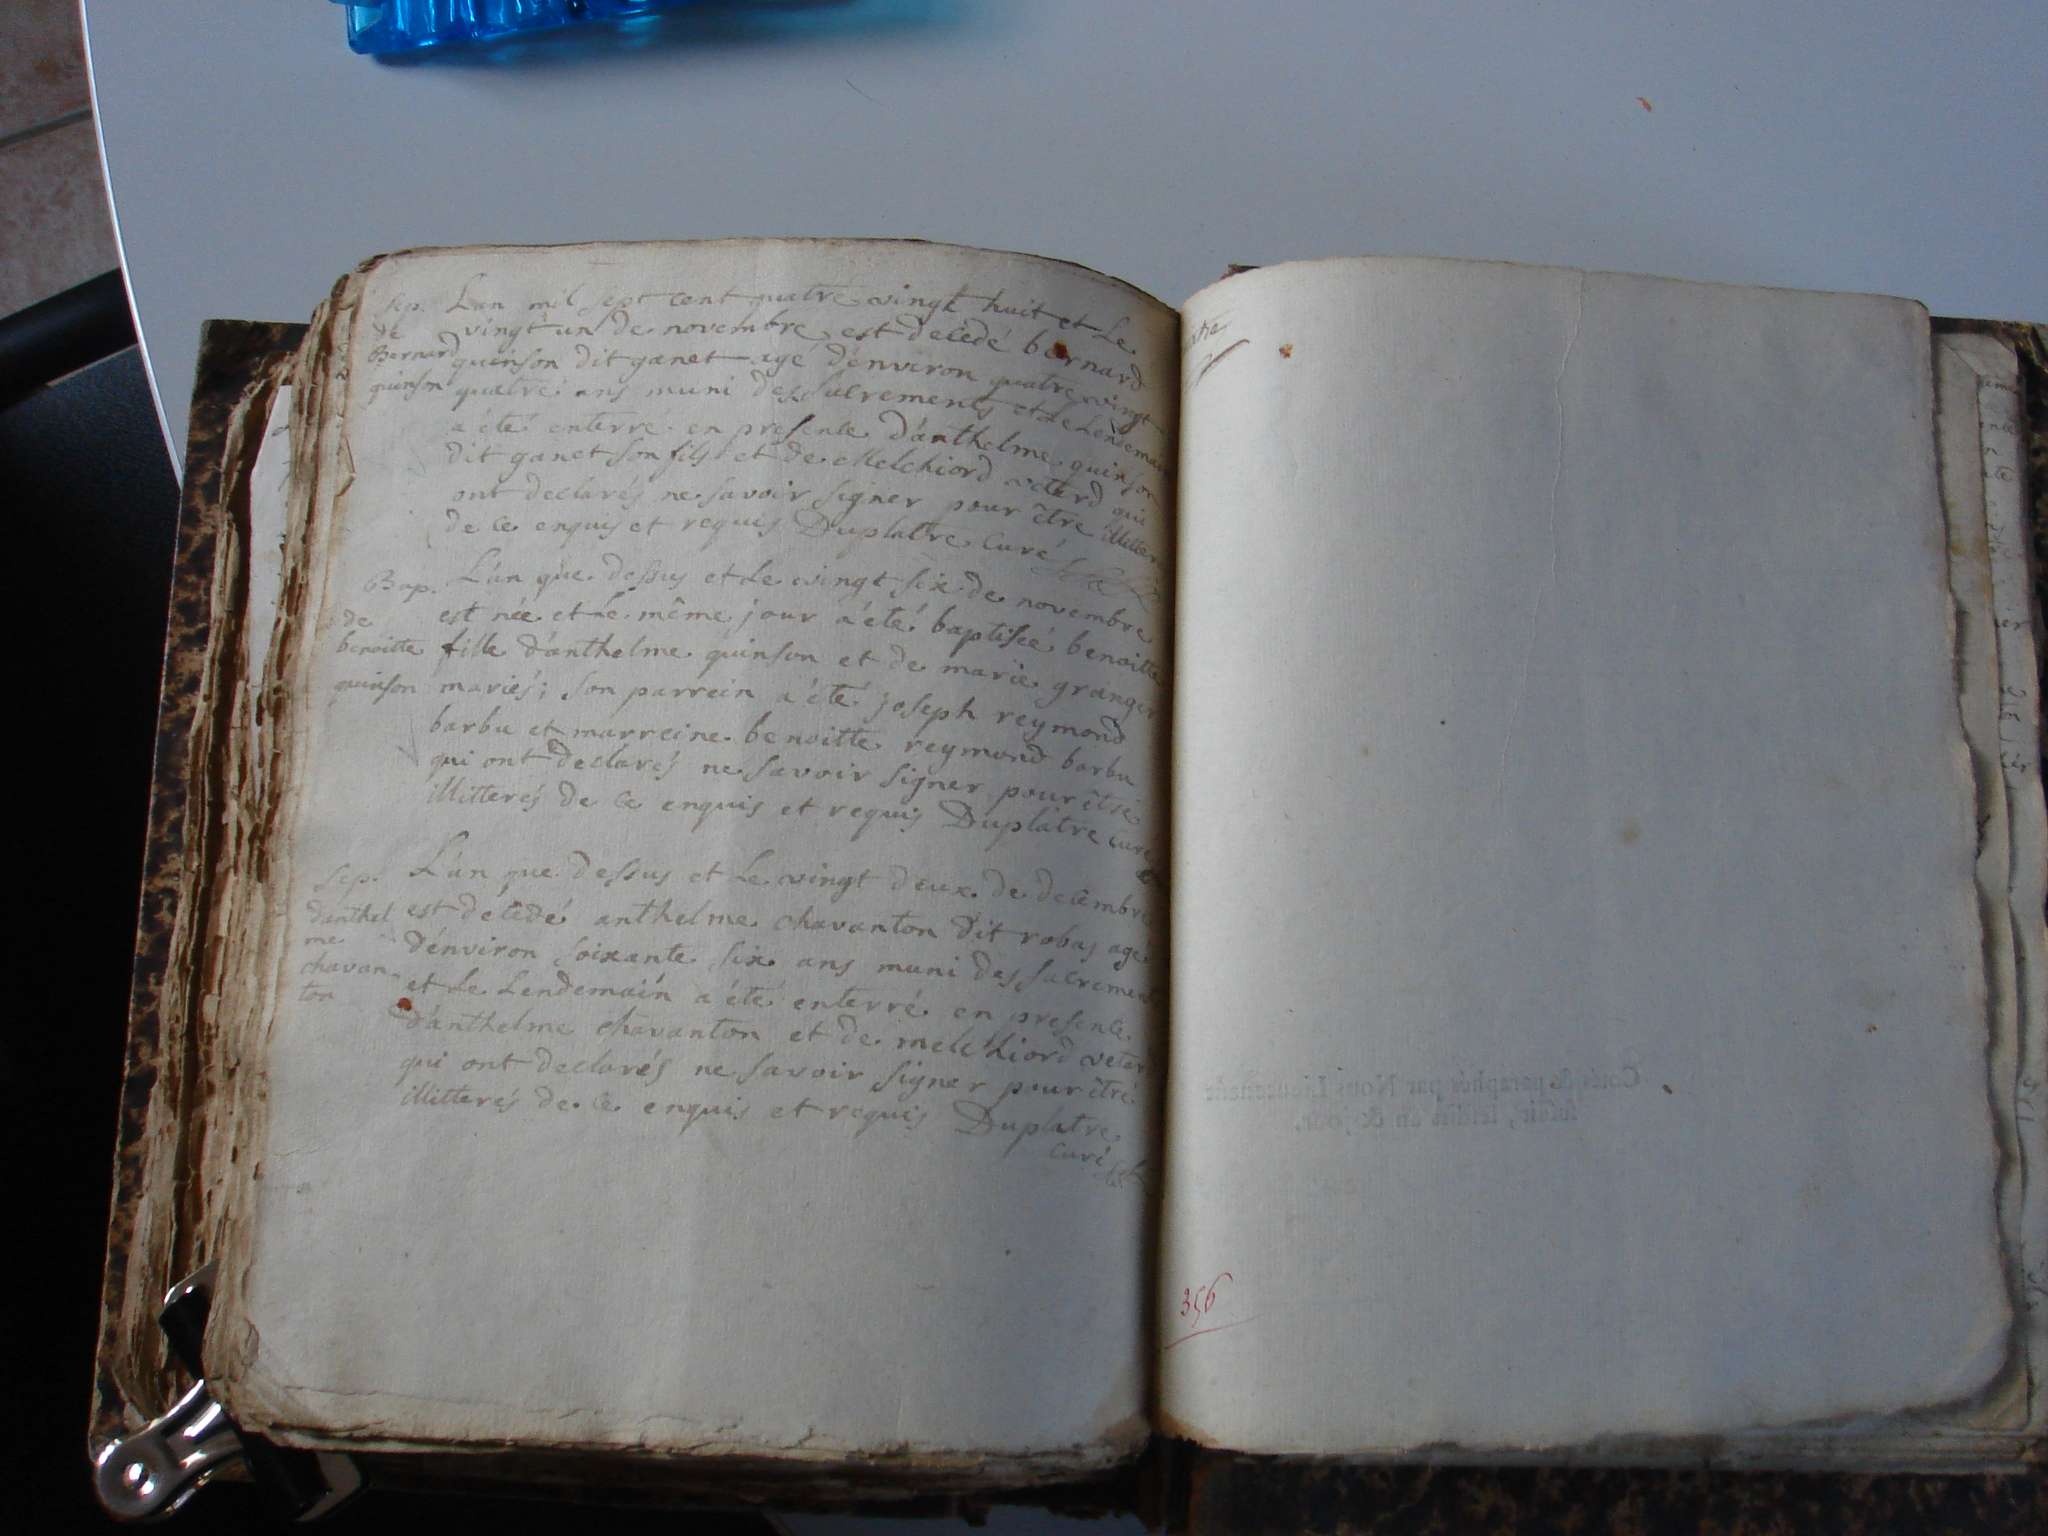 Sep.
de
Bernard
quinson
L'an mil sept cent quatre vingt huit et Le
vingt un de novembre est décédé bernard
quinson dit ganet age d'environ quatre vingt
quatre ans muni des sacrements et le Lendemain
a été enterré en presence d'anthelme quinson
dit ganet son fils et de Melchiord veterd qui
ont declarés ne savoir signer pour être illitter
de ce enquis et requis Duplatre Curé
Bap.
de
benoitte
quinson
L'an que dessus et Le vingt six de novembre
est née et Le même jour a été baptiseé benoitte
fille d'anthelme quinson et de marie granger
mariés; son parrein a été joseph reymond
barbu et marreine benoitte reymond barbu
qui ont declarés ne savoir signer pour être
illitterés de ce enquis et requis Duplatre curé
Sep.
danthel
me
chavan-
ton
L'an que dessus et Le vingt deux de decembre
est décédé anthelme chavanton dit robas agé
d'environ soixante six ans muni des sacrement
et Le Lendemain a été enterré en presence
d'anthelme chavanton et de melchiord veter
qui ont declarés ne savoir signer pour être
illitterés de ce enquis et requis Duplatre
Curé
356
Cotés & paraphés par Nous Lieutenant